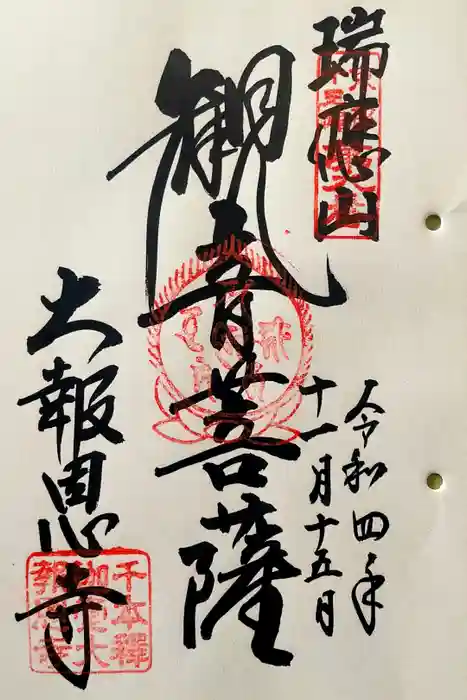 瑞應山
令和四年
十一月十五日
観音菩薩
大報恩寺
千本釋
迦堂大
報恩寺